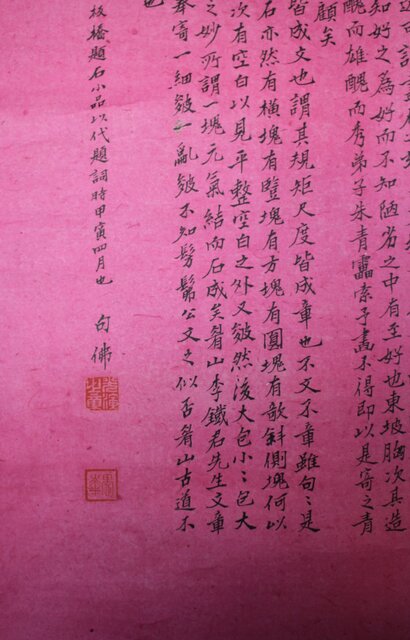 知好之為好而不知陋劣之中有至好也東坡胸次其造
醜而雄醜而秀弟子朱青靁索予畫不得即以是寄之青
顧矣
皆成文也謂其規矩尺度皆成章也不文不章雖句〻是
石亦然有橫塊有豎塊有方塊有圓塊有欹斜側塊何以
次有空白以見平整空白之外又皴然後大包小〻包大
之妙所謂一塊元氣結而石成矣眉山李鐵君先生文章
奉寄一細皴一亂皴不知髣髴公文之似否眉山古道不
也
板橋題石小品以代題詞時甲寅四月也
句佛